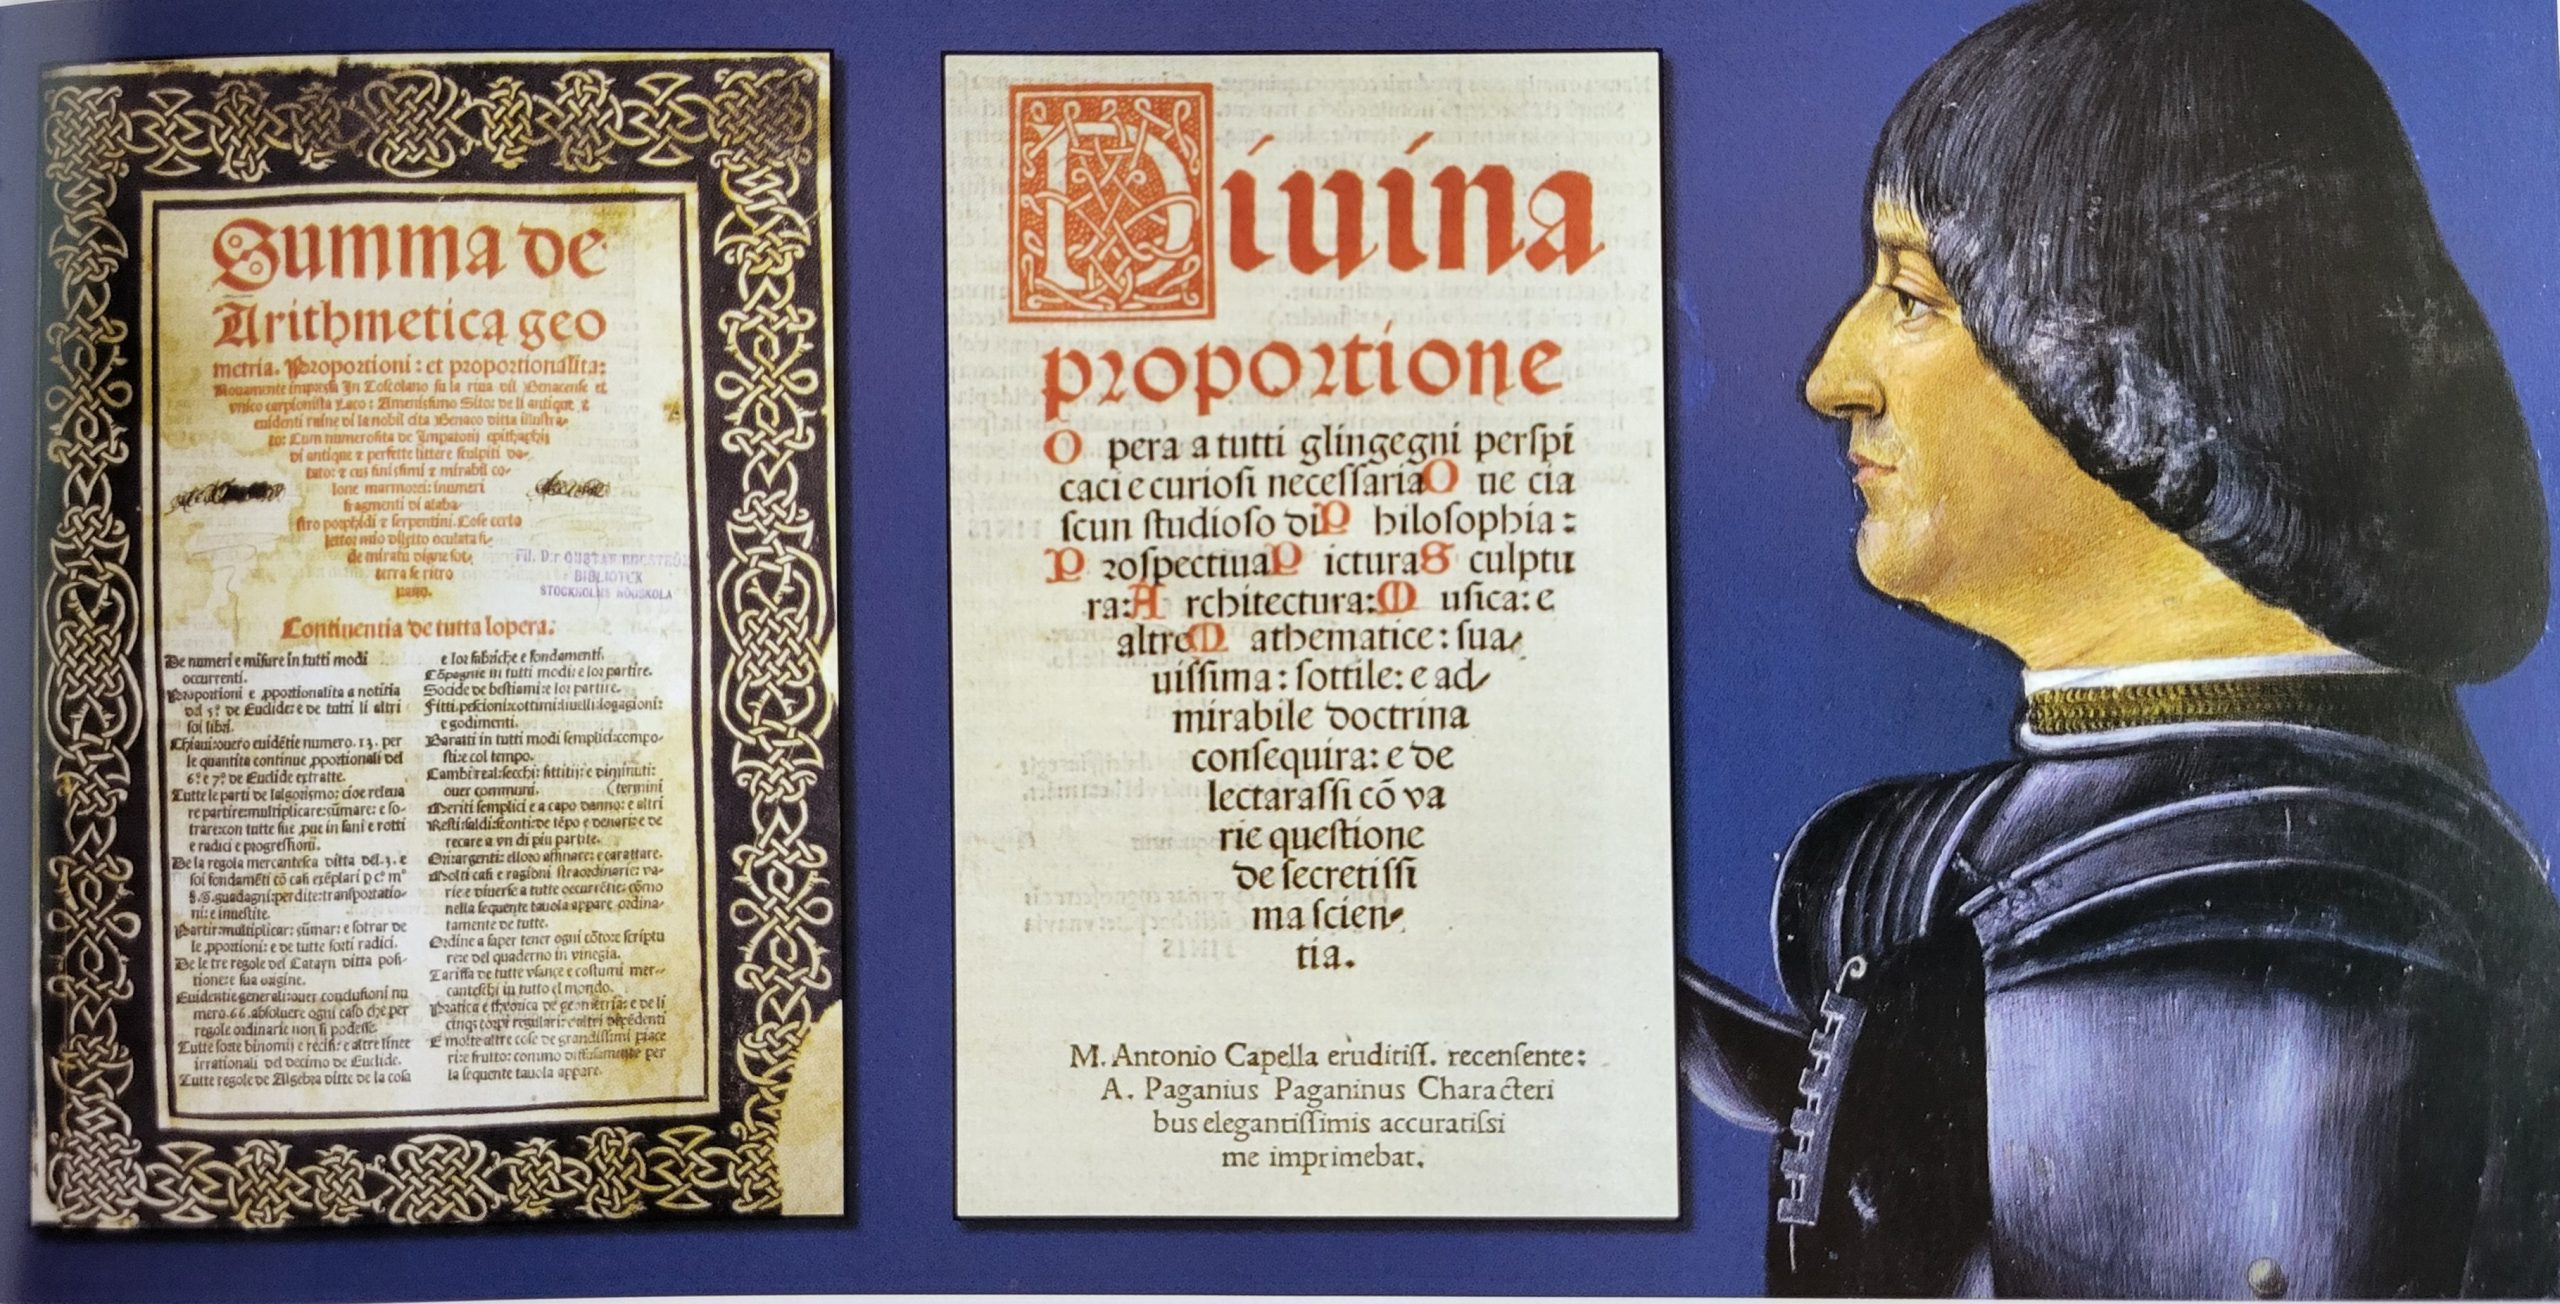 Summa de
Arithmetica geo
metria. Proportioni: et proportionalita:
Nouamente impressa In Toscolano su la riua dil Benacense et
vnico carpionista Laco: Amenissimo Sito: de li antique &
euidenti ruine di la nobil cita Benaco ditta illustra-
to: Cum numerosita de Impatorij epithaphij
di antique & perfette littere sculpiti do-
tato: & cus finissimi & mirabil co-
lone marmorei: inumeri
fragmenti di alaba-
stro porphidi & serpentini. Cose certo
lettor mio diletto oculata fi-
de miratu digne sot-
terra se ritro
uano.
Fil. D:r
BIBLIOTEK
STOCKHOLMS HÖGSKOLA
Continentia de tutta lopera:
De numeri e misure in tutti modi
occurrenti.
Proportioni e ꝓportionalita a notitia
del 5º. de Euclide: e de tutti li altri
soi libri.
Chiaui: ouero euidẽtie numero. 13. per
le quantita continue ꝓportionali del
6º. e 7º. de Euclide extratte.
Tutte le parti de lalgorismo: cioe releua
re partire: multiplicare: sũmare: e so-
trare: con tutte sue ꝓue in sani e rotti
e radici e progressioni.
De la regola mercantesca ditta del. 3. e
soi fondamẽti cõ casi exẽplari p cº. mº
guadagni: perdite: transportatio-
ni: e inuestite.
Partir: multiplicar: sũmar: e sotrar de
le ꝓportioni: e de tutte sorti radici.
De le tre regole del Catayn ditta posi-
tione: e sua origine.
Euidentie generali: ouer conclusioni nu
mero. 66. absoluere ogni caso che per
regole ordinarie non si podesse.
Tutte sorte binomij e recisi: e altre linee
irrationali del decimo de Euclide.
Tutte regole de Algebra ditte de la cosa
e lor fabriche e fondamenti.
Cõpagnie in tutti modi: e lor partire.
Socide de bestiami: e lor partire.
Fitti: pescioni: cottimi: liuelli: logagioni:
e godimenti.
Baratti in tutti modi semplici: compo-
sti: e col tempo.
Cambi real: secchi: fittitij: e diminuti:
ouer communi.
Meriti semplici e a capo danno: e altri (termini
Resti: saldi: sconti: de tẽpo e denari: e de
recare a vn di piu partite.
Ori: argenti: e lloro affinare: e carattare.
Molti casi e ragioni straordinarie: va-
rie e diuerse a tutte occurrẽtie: cõmo
nella sequente tauola appare ordina-
tamente de tutte.
Ordine a saper tener ogni cõto: e scriptu
re: e del quaderno in vinegia.
Tariffa de tutte vsançe e costumi mer-
canteschi in tutto el mondo.
Pratica e theorica de geometria: e de li
cinq; corpi regulari: e altri dependenti
E molte altre cose de grandissimi piace
ri: e frutto: commo diffusamente per
la sequente tauola appare.
Diuina
proportione
Opera a tutti glingegni perspi
caci e curiosi necessaria One cia
scun studioso di Philosophia:
Prospectiua Pictura Sculptu
ra: Architectura: Musica: e
altre Mathematice: sua-
uissima: sottile: e ad-
mirabile doctrina
consequira: e de
lectarassi cõ va
rie questione
de secretissi
ma scien-
tia.
M. Antonio Capella eruditiss. recensente:
A. Paganius Paganinus Characteri
bus elegantissimis accuratissi
me imprimebat.